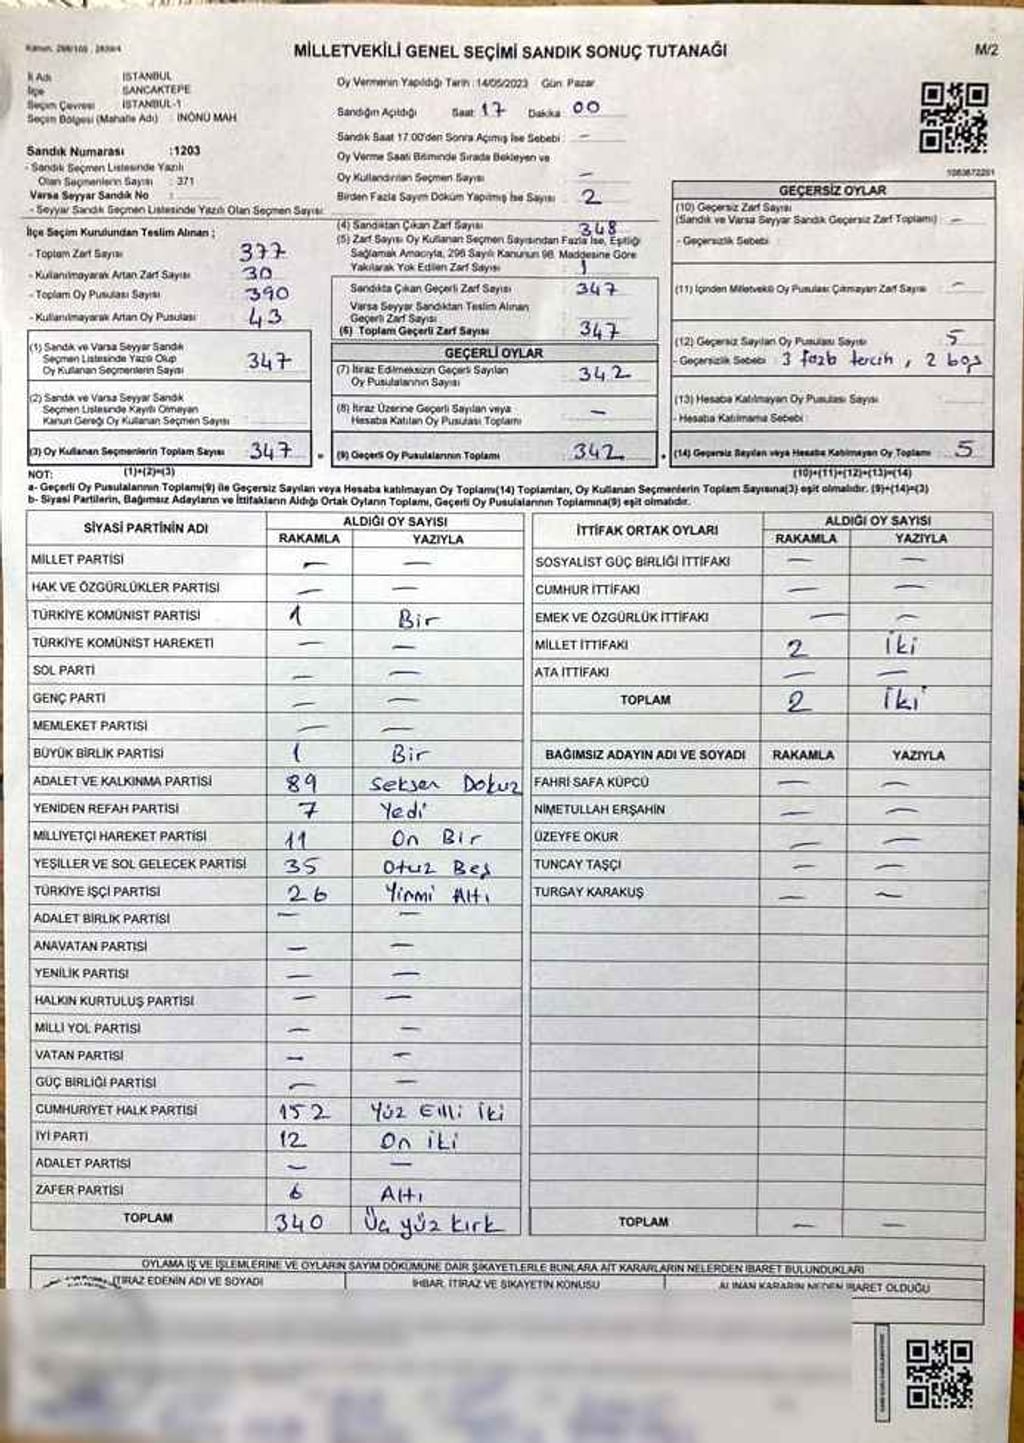 MİLLETVEKİLİ GENEL SEÇİMİ SANDIK SONUÇ TUTANAĞI
M/2
İl Adı : İSTANBUL
İlçe : SANCAKTEPE
Seçim Çevresi : İSTANBUL-1
Seçim Bölgesi (Mahalle Adı) : İNÖNÜ MAH
Sandık Numarası :1203
- Sandık Seçmen Listesinde Yazılı
Olan Seçmenlerin Sayısı : 371
Varsa Seyyar Sandık No :
- Seyyar Sandık Seçmen Listesinde Yazılı Olan Seçmen Sayısı:
İlçe Seçim Kurulundan Teslim Alınan ;
- Toplam Zarf Sayısı 377
- Kullanılmayarak Artan Zarf Sayısı 30
- Toplam Oy Pusulası Sayısı 390
- Kullanılmayarak Artan Oy Pusulası 43
(1) Sandık ve Varsa Seyyar Sandık
Seçmen Listesinde Yazılı Olup
Oy Kullanan Seçmenlerin Sayısı 347
(2) Sandık ve Varsa Seyyar Sandık
Seçmen Listesinde Kayıtlı Olmayan
Kanun Gereği Oy Kullanan Seçmen Sayısı
(3) Oy Kullanan Seçmenlerin Toplam Sayısı 347
(1)+(2)=(3)
Oy Vermenin Yapıldığı Tarih :14/05/2023 Gün: Pazar
Sandığın Açıldığı Saat: 17 Dakika: 00
Sandık Saat 17.00'den Sonra Açılmış İse Sebebi : —
Oy Verme Saati Bitiminde Sırada Bekleyen ve
Oy Kullandırılan Seçmen Sayısı —
Birden Fazla Sayım Döküm Yapılmış İse Sayısı 2
(4) Sandıktan Çıkan Zarf Sayısı 348
(5) Zarf Sayısı Oy Kullanan Seçmen Sayısından Fazla İse, Eşitliği
Sağlamak Amacıyla, 298 Sayılı Kanunun 98. Maddesine Göre
Yakılarak Yok Edilen Zarf Sayısı 1
Sandıkta Çıkan Geçerli Zarf Sayısı 347
Varsa Seyyar Sandıktan Teslim Alınan
Geçerli Zarf Sayısı
(6) Toplam Geçerli Zarf Sayısı 347
GEÇERLİ OYLAR
(7) İtiraz Edilmeksizin Geçerli Sayılan
Oy Pusulalarının Sayısı 342
(8) İtiraz Üzerine Geçerli Sayılan veya
Hesaba Katılan Oy Pusulası Toplamı —
(9) Geçerli Oy Pusulalarının Toplamı 342
1083672201
GEÇERSİZ OYLAR
(10) Geçersiz Zarf Sayısı
(Sandık ve Varsa Seyyar Sandık Geçersiz Zarf Toplamı) : —
- Geçersizlik Sebebi :
(11) İçinden Milletvekili Oy Pusulası Çıkmayan Zarf Sayısı —
(12) Geçersiz Sayılan Oy Pusulası Sayısı 5
- Geçersizlik Sebebi : 3 fazla tercih, 2 boş
(13) Hesaba Katılmayan Oy Pusulası Sayısı
- Hesaba Katılmama Sebebi :
(14) Geçersiz Sayılan veya Hesaba Katılmayan Oy Toplamı 5
(10)+(11)+(12)+(13)=(14)
NOT:
a- Geçerli Oy Pusulalarının Toplamı(9) ile Geçersiz Sayılan veya Hesaba katılmayan Oy Toplamı(14) Toplamları, Oy Kullanan Seçmenlerin Toplam Sayısına(3) eşit olmalıdır. (9)+(14)=(3)
b- Siyasi Partilerin, Bağımsız Adayların ve İttifakların Aldığı Ortak Oyların Toplamı, Geçerli Oy Pusulalarının Toplamına(9) eşit olmalıdır.
SİYASİ PARTİNİN ADI ALDIĞI OY SAYISI
RAKAMLA YAZIYLA
MİLLET PARTİSİ — —
HAK VE ÖZGÜRLÜKLER PARTİSİ — —
TÜRKİYE KOMÜNİST PARTİSİ 1 Bir
TÜRKİYE KOMÜNİST HAREKETİ — —
SOL PARTİ — —
GENÇ PARTİ — —
MEMLEKET PARTİSİ — —
BÜYÜK BİRLİK PARTİSİ 1 Bir
ADALET VE KALKINMA PARTİSİ 89 Seksen Dokuz
YENİDEN REFAH PARTİSİ 7 Yedi
MİLLİYETÇİ HAREKET PARTİSİ 11 On Bir
YEŞİLLER VE SOL GELECEK PARTİSİ 35 Otuz Beş
TÜRKİYE İŞÇİ PARTİSİ 26 Yirmi Altı
ADALET BİRLİK PARTİSİ — —
ANAVATAN PARTİSİ — —
YENİLİK PARTİSİ — —
HALKIN KURTULUŞ PARTİSİ — —
MİLLİ YOL PARTİSİ — —
VATAN PARTİSİ — —
GÜÇ BİRLİĞİ PARTİSİ — —
CUMHURİYET HALK PARTİSİ 152 Yüz Elli İki
İYİ PARTİ 12 On iki
ADALET PARTİSİ — —
ZAFER PARTİSİ 6 Altı
TOPLAM 340 Üç yüz kırk
İTTİFAK ORTAK OYLARI ALDIĞI OY SAYISI
RAKAMLA YAZIYLA
SOSYALİST GÜÇ BİRLİĞİ İTTİFAKI — —
CUMHUR İTTİFAKI — —
EMEK VE ÖZGÜRLÜK İTTİFAKI — —
MİLLET İTTİFAKI 2 İki
ATA İTTİFAKI — —
TOPLAM 2 İki
BAĞIMSIZ ADAYIN ADI VE SOYADI RAKAMLA YAZIYLA
FAHRİ SAFA KÜPCÜ — —
NİMETULLAH ERŞAHİN — —
ÜZEYFE OKUR — —
TUNCAY TAŞÇI — —
TURGAY KARAKUŞ — —
TOPLAM — —
OYLAMA İŞ VE İŞLEMLERİNE VE OYLARIN SAYIM DÖKÜMÜNE DAİR ŞİKAYETLERLE BUNLARA AİT KARARLARIN NELERDEN İBARET BULUNDUKLARI
İTİRAZ EDENİN ADI VE SOYADI İHBAR, İTİRAZ VE ŞİKAYETİN KONUSU ALINAN KARARIN NEDEN İBARET OLDUĞU